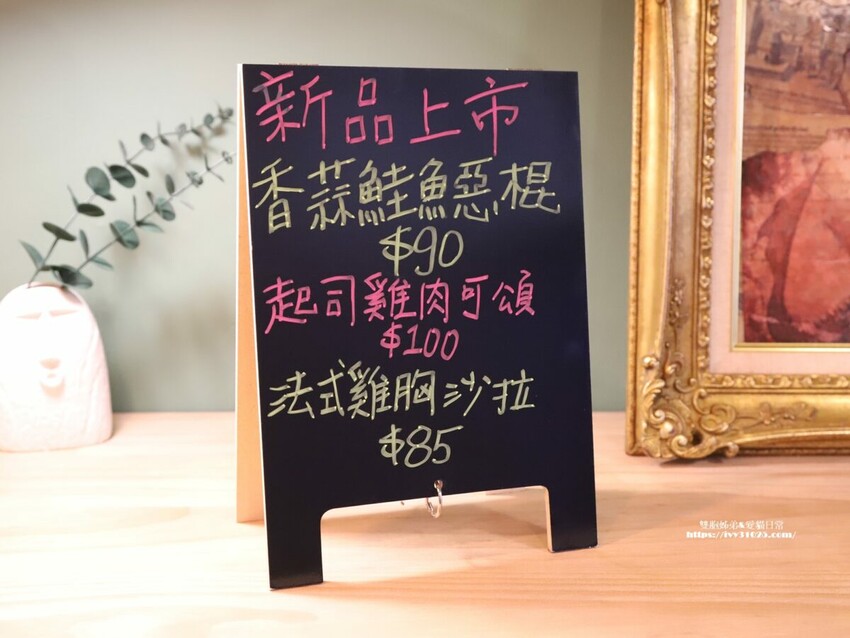 新品上市
香蒜鮭魚惡棍
$90
起司雞肉可頌
$100
法式雞胸沙拉
$85
雙胞姊弟&愛貓日常
https://ivy31025.com/